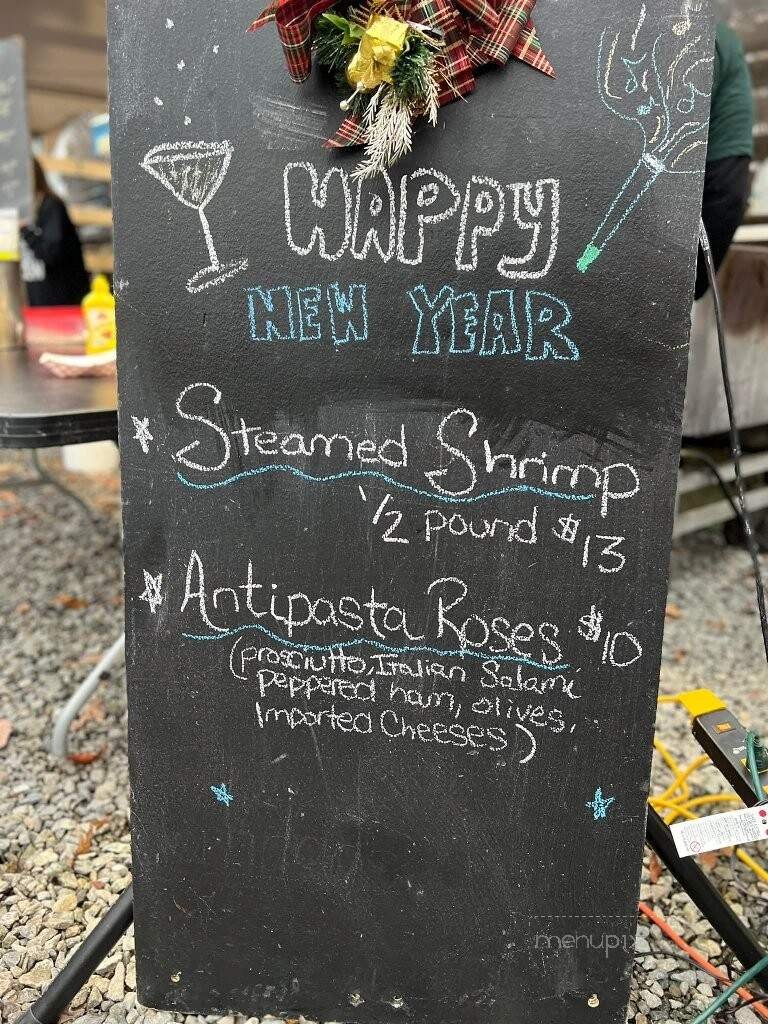 HAPPY
NEW YEAR
Steamed Shrimp
1/2 pound $13
Antipasta Roses $10
(prosciutto, Italian Salami
peppered ham, olives,
Imported Cheeses)
menupix